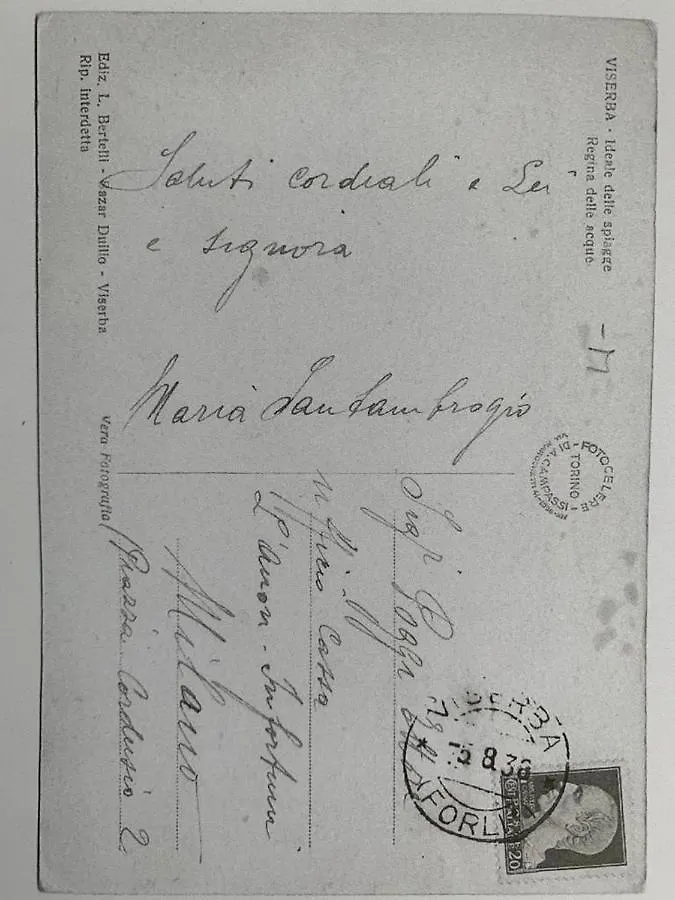 VISERBA - Ideale delle spiagge
Regina delle acque
Saluti cordiali a Lei
e signora
Maria Santambrogio
Ediz. L. Bertelli - Bazar Duilio - Viserba
Rip. interdetta
Vera Fotografia
FOTOCELERE
DI A. CAMPASSI
TORINO
Sig. Poggi
Ufficio Cassa
L'Anon. Infortuni
Milano
(Piazza Cordusio 2
VISERBA
5.8.36
FORLI
POSTE
ITALIANE
20